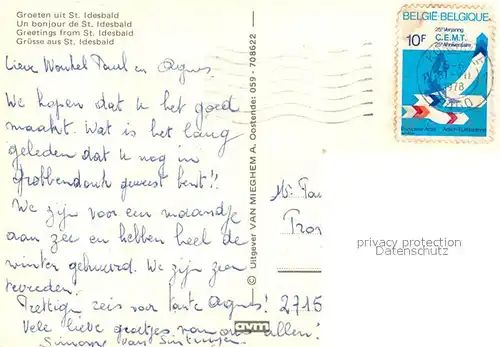 Groeten uit St. Idesbald
Un bonjour de St. Idesbald
Greetings from St. Idesbald
Grüsse aus St. Idesbald
Lieve Paul en Agnes
We hopen dat u het goed
maakt. Wat is het lang
geleden dat u nog in
grobbendonk geweest bent!!
We zijn voor een maandje
aan zee en hebben heel de
winter gehuurd. We zijn zeer
tevreden.
Prettige reis voor tante Agnes! 2715
Vele lieve groetjes van ons allen!
Simonne van
© Uitgever VAN MIEGHEM A. Oostende: 059 - 708622
avm
BELGIË BELGIQUE
10F
25e Verjaring
C.E.M.T.
25e Anniversaire
1978
privacy protection
Datenschutz